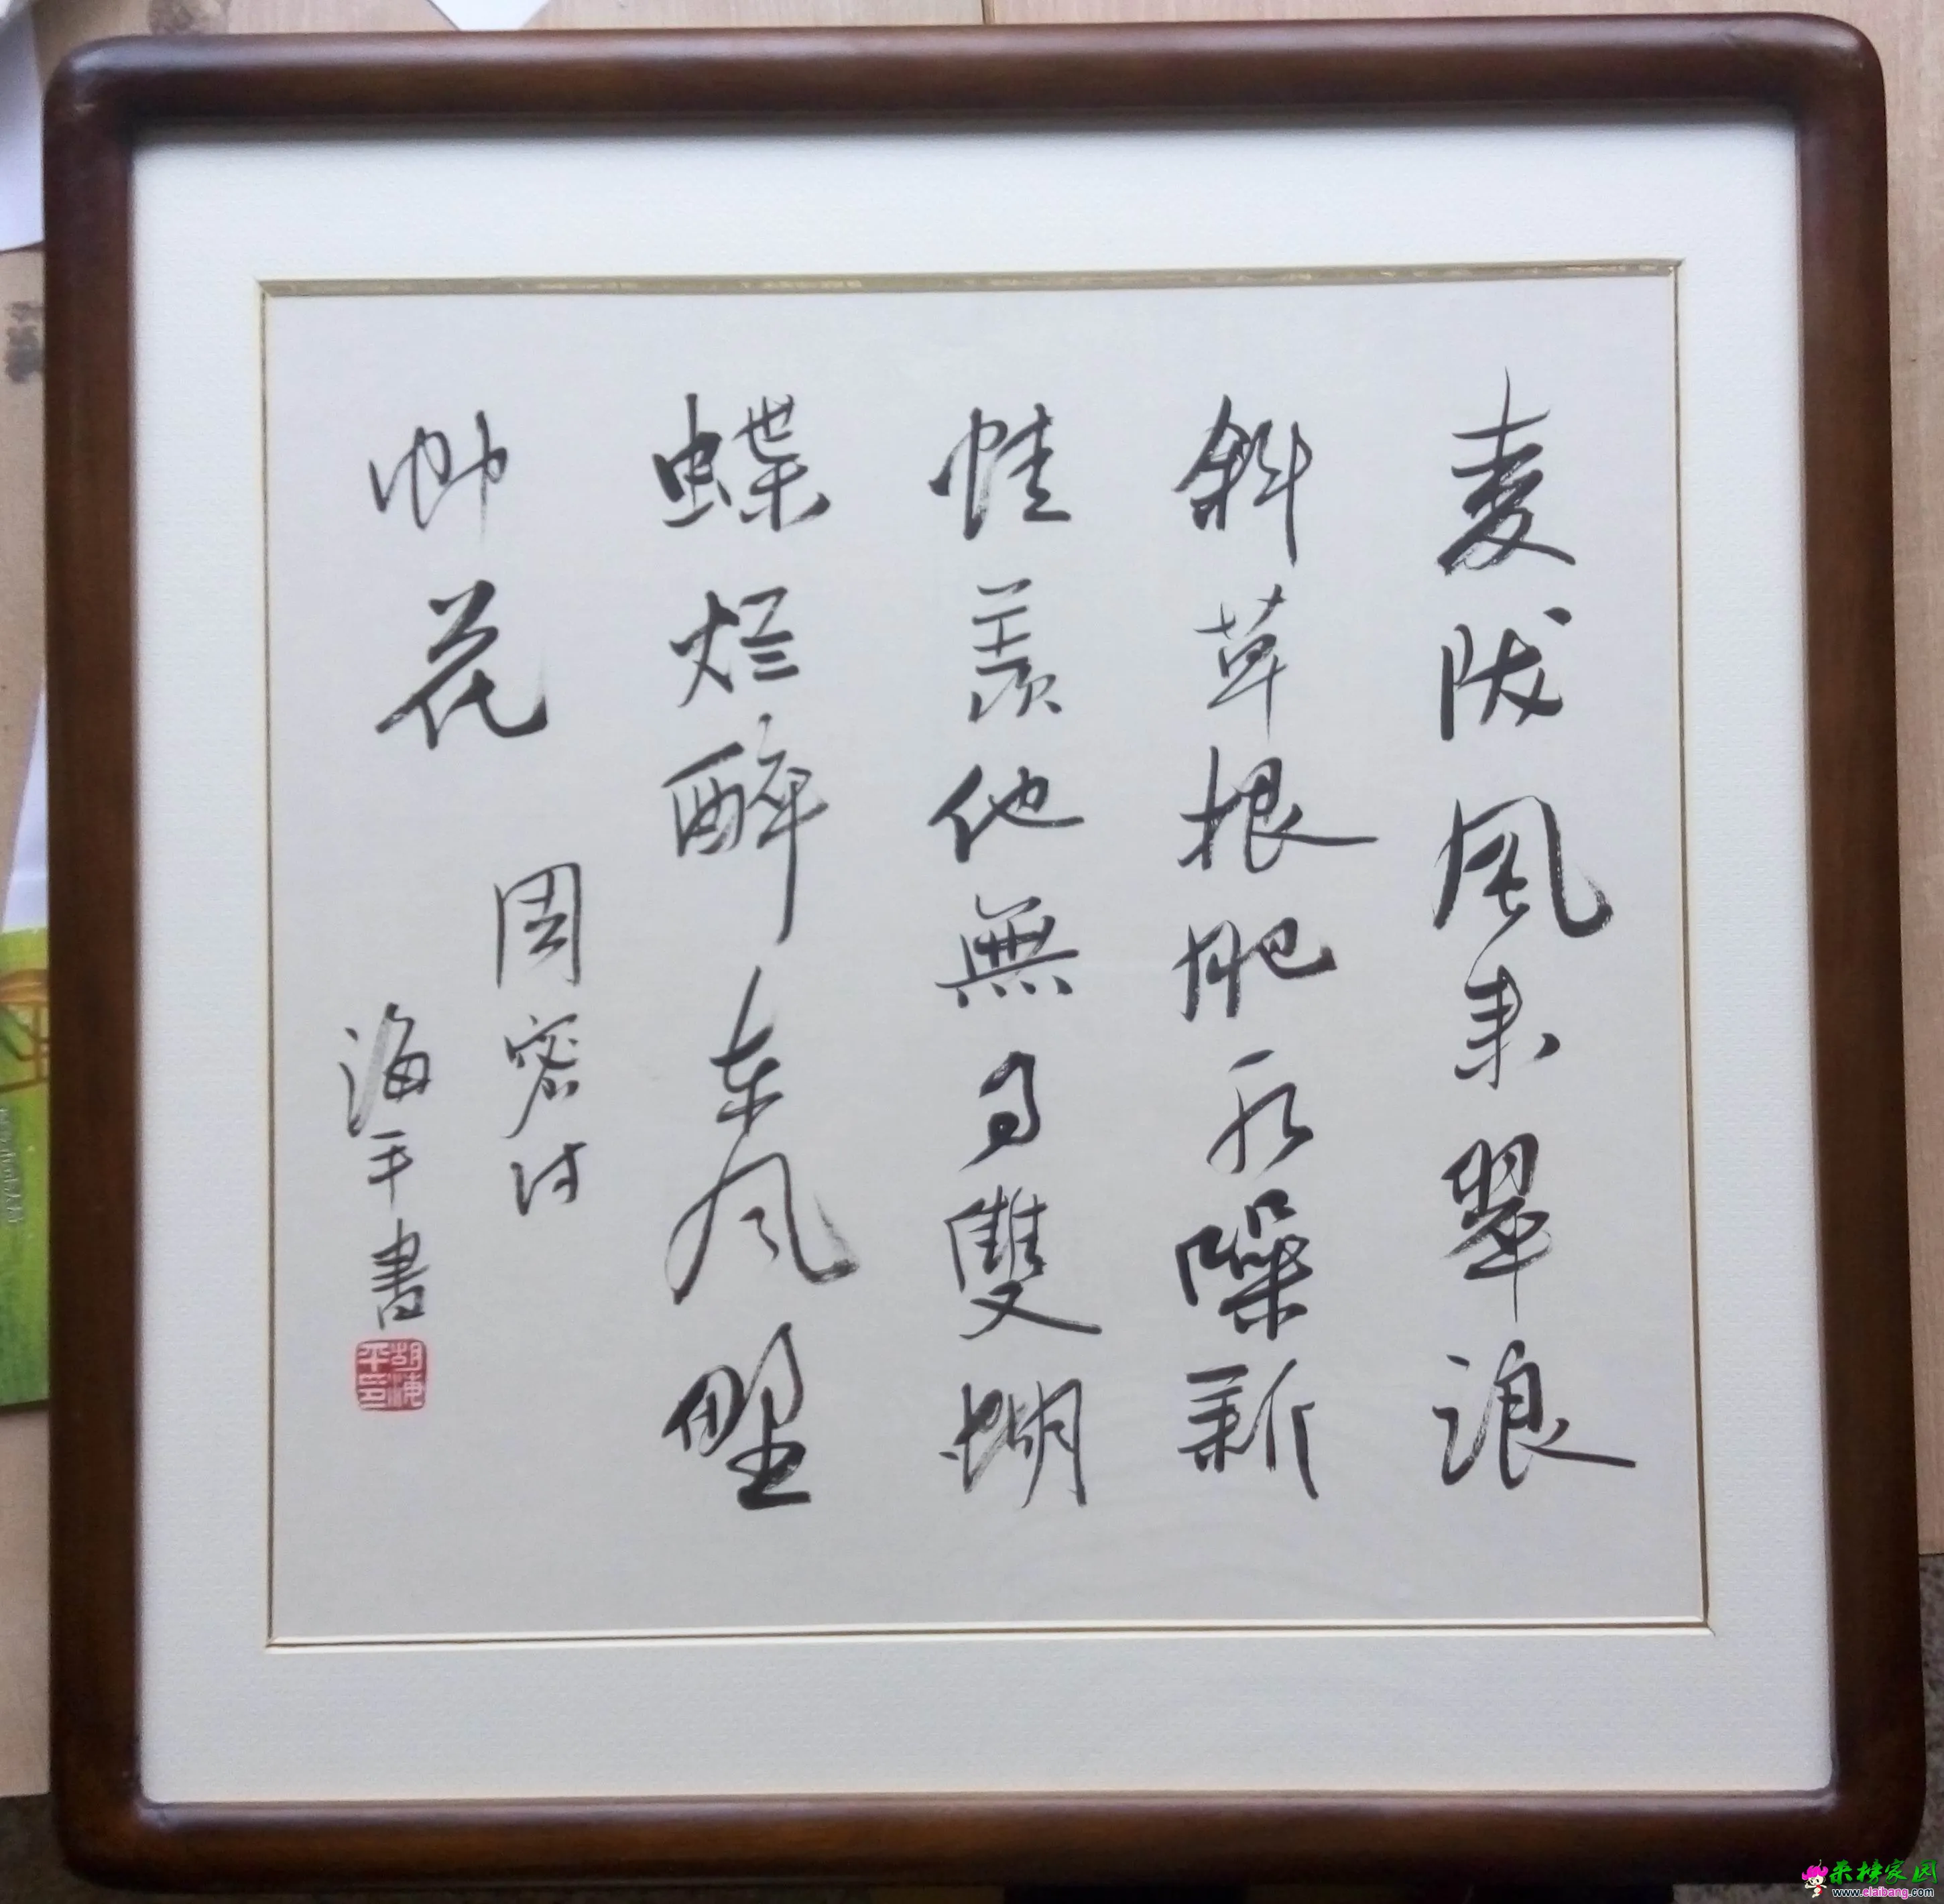 麦陇風来翠浪
斜草根肥水噪新
蛙羡他無事雙蝴
蝶烂醉东风野
艸花
周密诗
海平書
胡海平印
来榜家园
www.elaibang.com